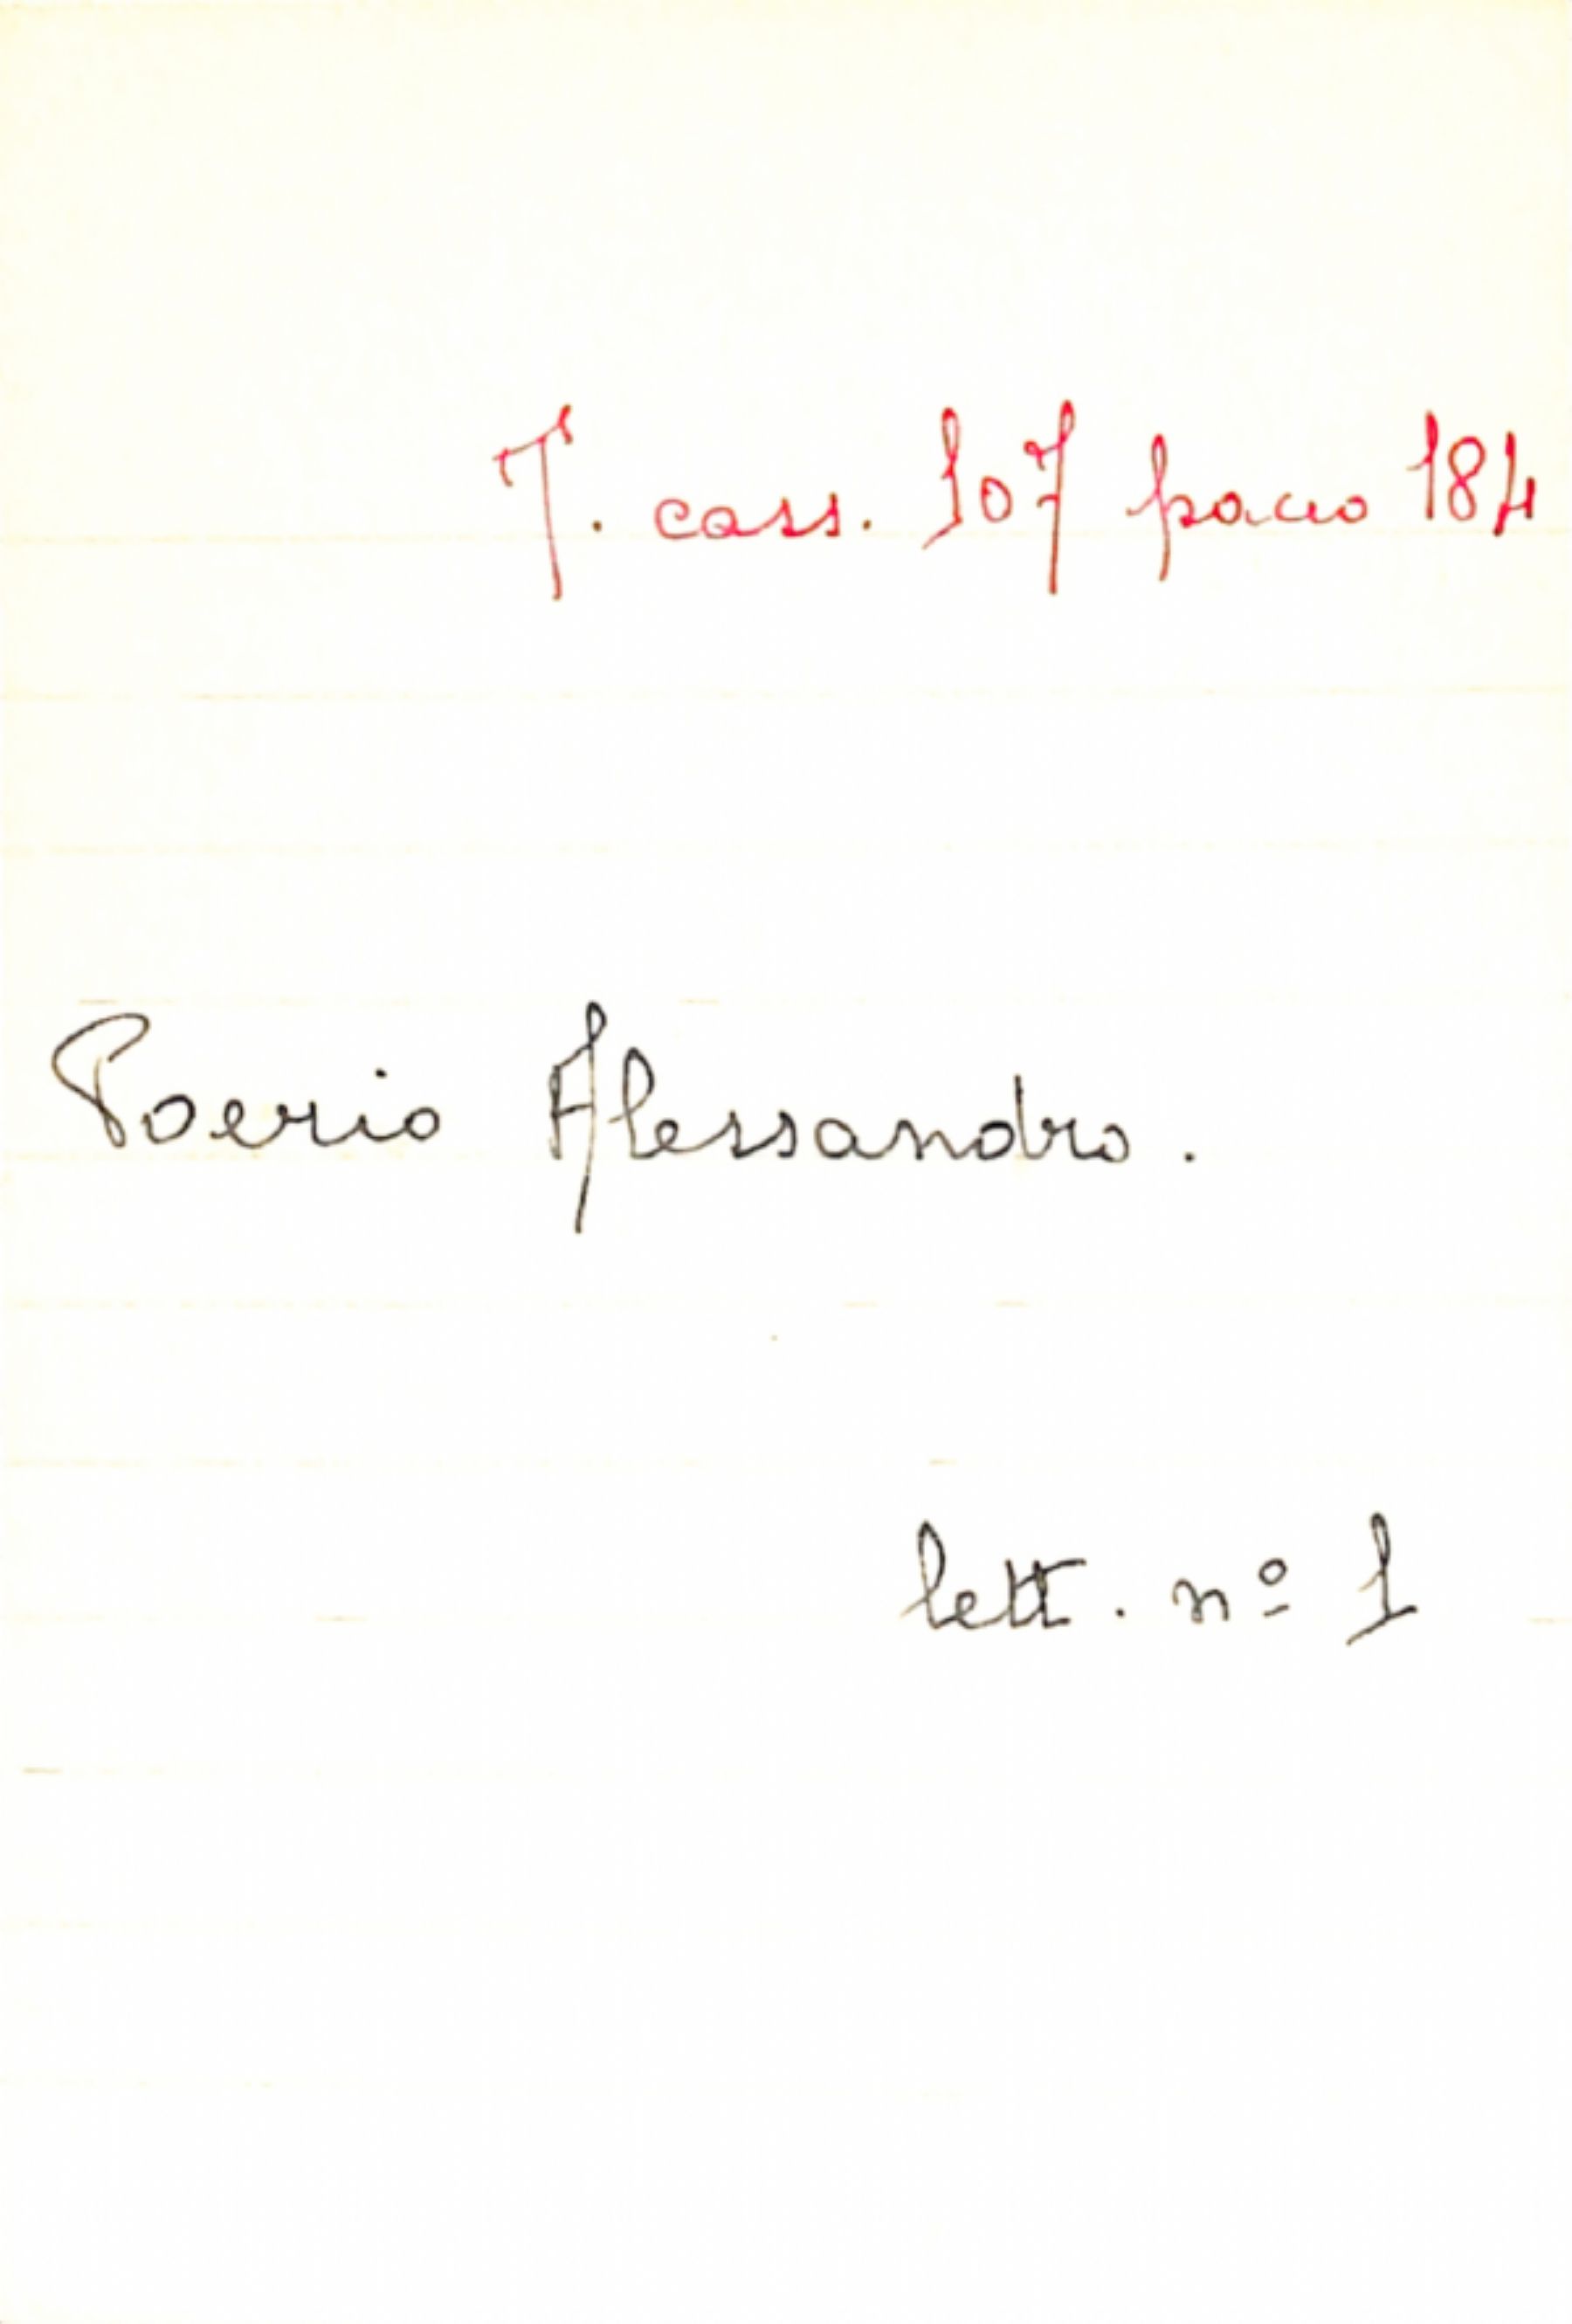 T. cass. 107 pacco 184
Poerio Alessandro.
lett. nº 1